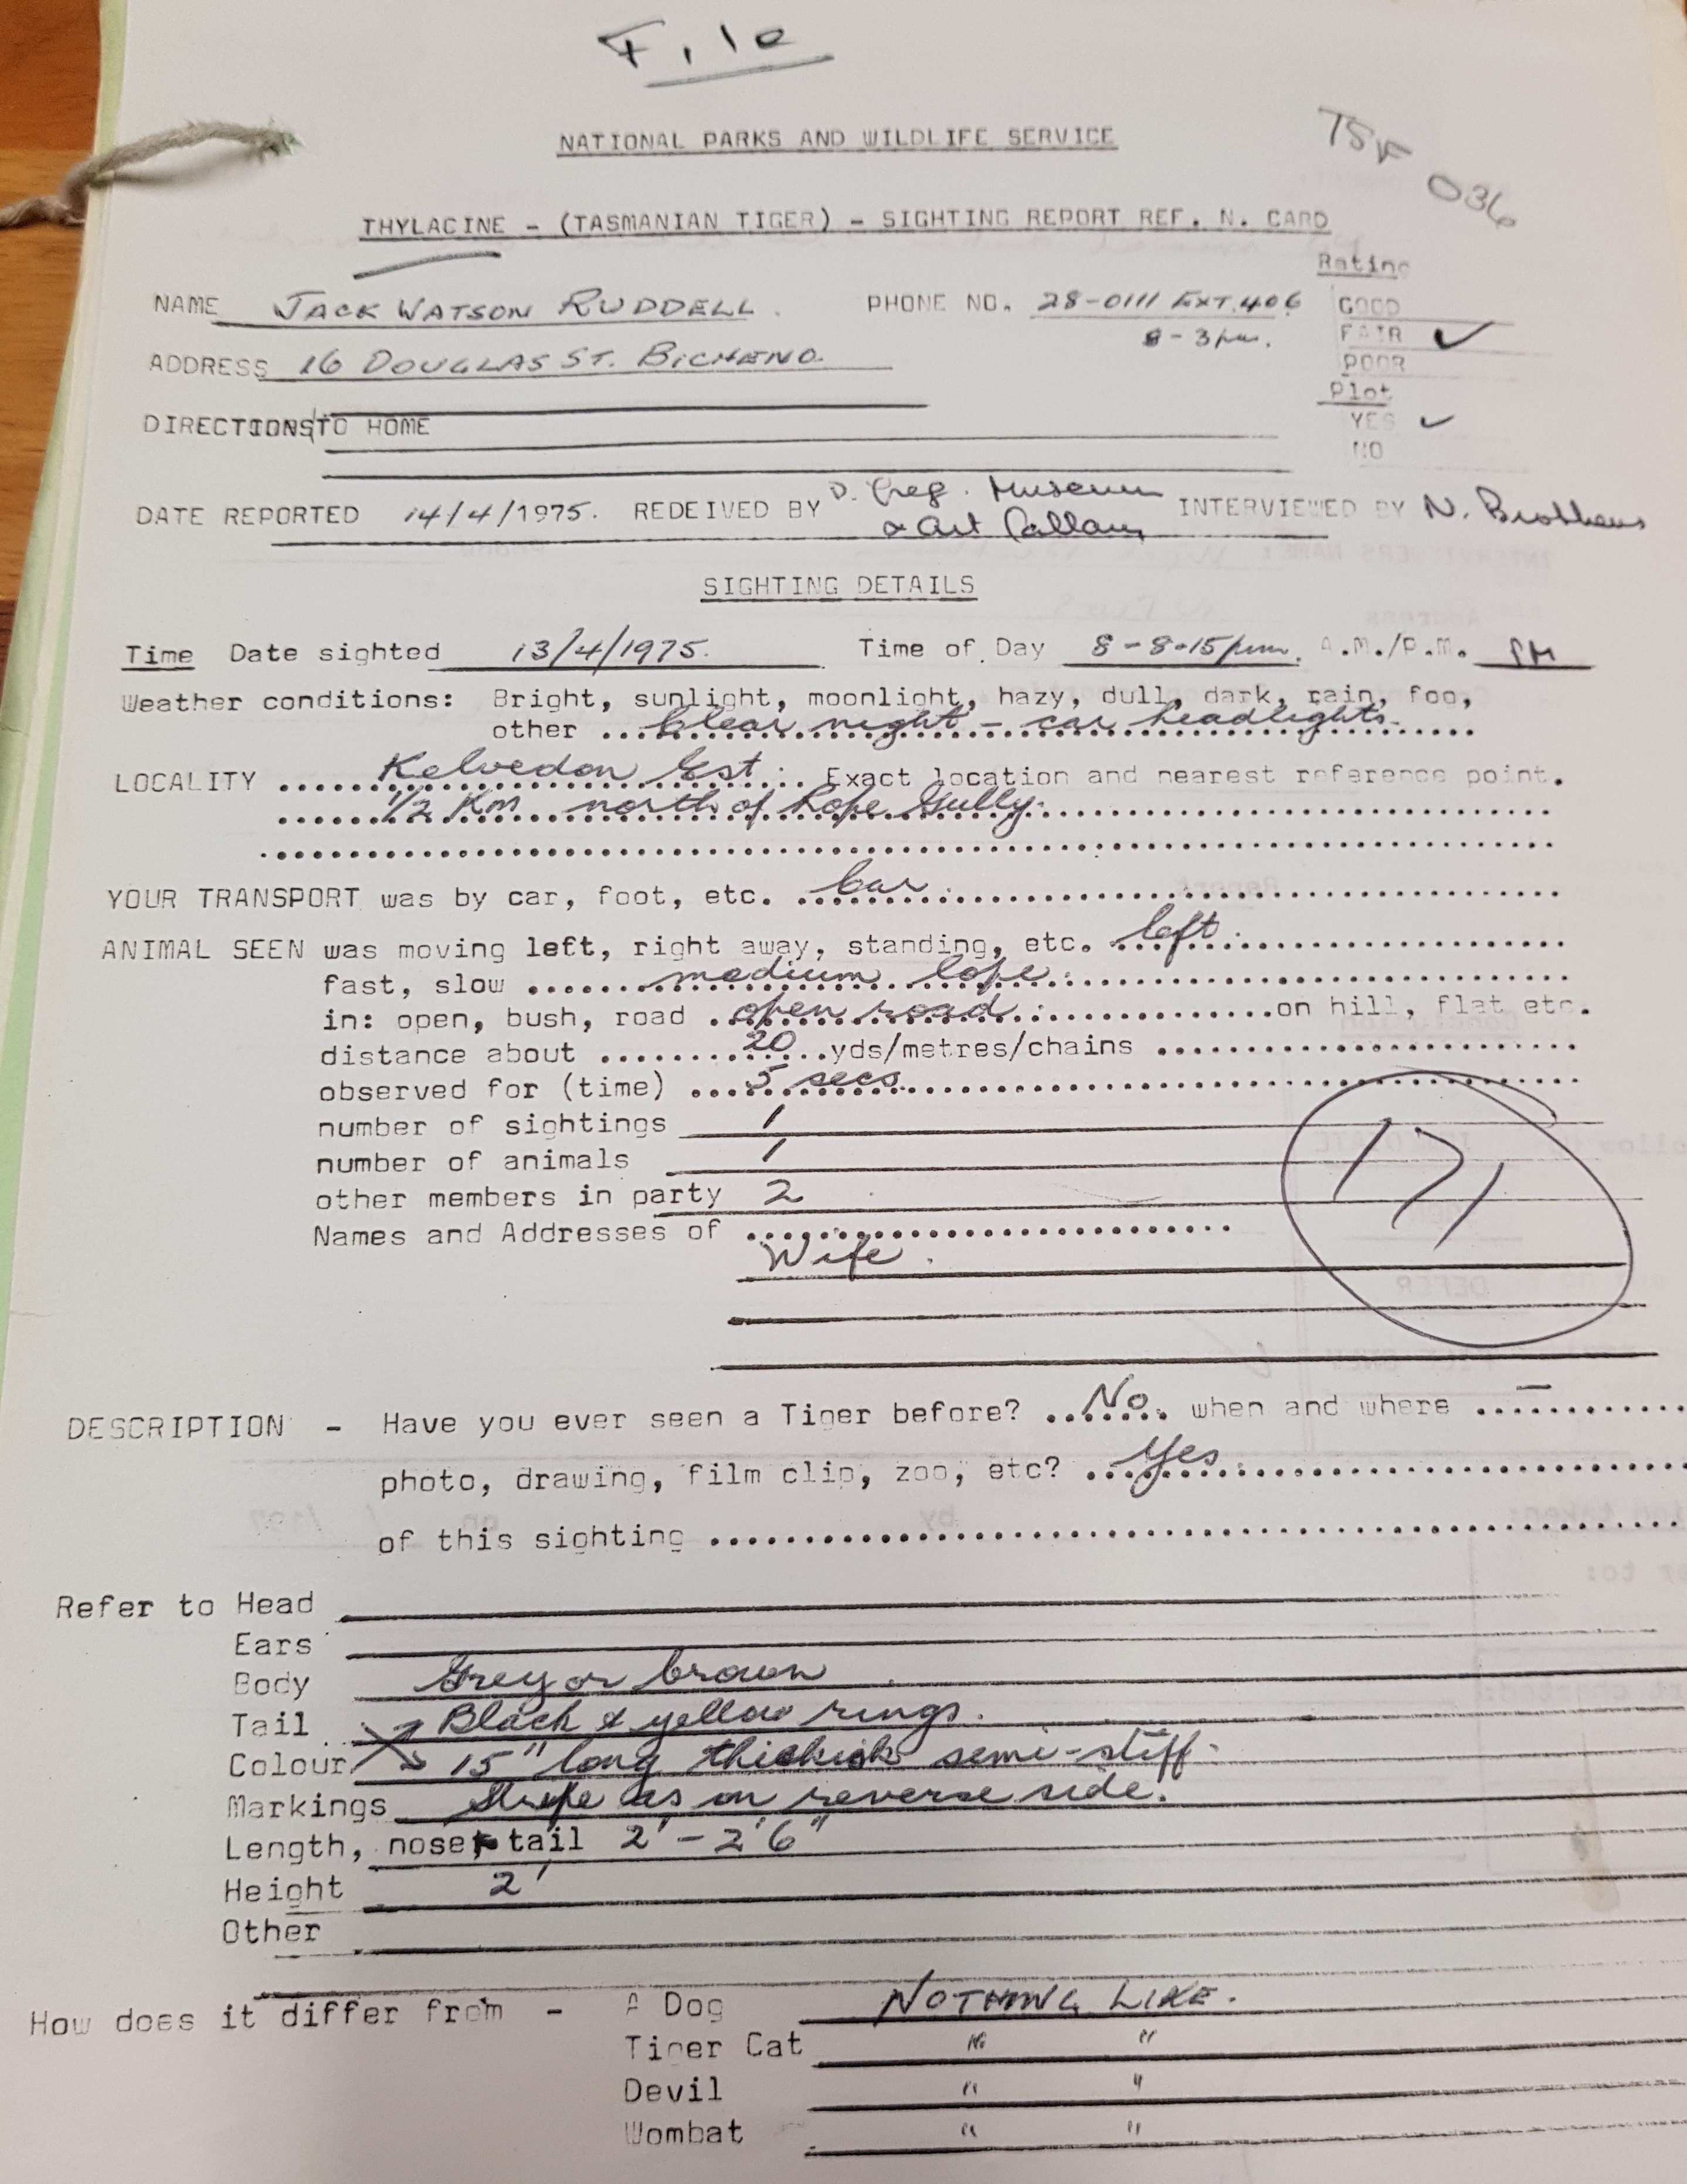 File
NATIONAL PARKS AND WILDLIFE SERVICE
TSR 036
THYLACINE - (TASMANIAN TIGER) - SIGHTING REPORT REF. N. CARD
Rating
NAME JACK WATSON RUDDELL. PHONE NO. 28-0111 EXT.406 GOOD
8-3pm. FAIR ✓
ADDRESS 16 DOUGLAS ST. BICHENO. POOR
Plot
DIRECTIONS TO HOME YES ✓
NO
DATE REPORTED 14/4/1975. REDEIVED BY D. Greg. Museum INTERVIEWED BY N. Brothers
& Art
SIGHTING DETAILS
Time Date sighted 13/4/1975. Time of Day 8-8.15pm. A.M./P.M. PM
Weather conditions: Bright, sunlight, moonlight, hazy, dull, dark, rain, foo,
other ... Clear night - car headlights.
LOCALITY ... Kelvedon Est. Exact location and nearest reference point.
1/2 Km north of Rope Gully.
YOUR TRANSPORT was by car, foot, etc. ... Car
ANIMAL SEEN was moving left, right away, standing, etc. ... left
fast, slow ... medium lope
in: open, bush, road ... open road ... on hill, flat etc.
distance about ... 20 ... yds/metres/chains ...
observed for (time) ... 5 secs
number of sightings 1
number of animals 1
171
other members in party 2
Names and Addresses of ...
Wife.
DESCRIPTION - Have you ever seen a Tiger before? ... No. when and where ... —
photo, drawing, film clip, zoo, etc? ... Yes
of this sighting ...
Refer to Head
Ears
Body Grey or brown
Tail Black & yellow rings.
Colour 15" long thickish semi-stiff.
Markings Stripe as on reverse side.
Length, nose tail 2' - 2'6"
Height 2'
Other
How does it differ from - A Dog NOTHING LIKE.
Tiger Cat " "
Devil " "
Wombat " "